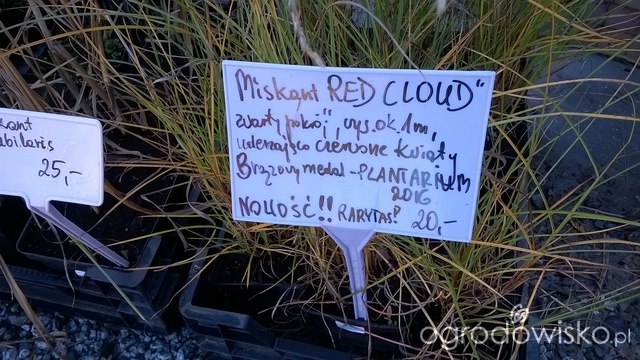 Miskant RED CLOUD"
zwarty pokrój, wys. ok. 1m,
uderzająco czerwone kwiaty
Brązowy medal - PLANTARIUM
2016
NOWOŚĆ!! RARYTAS! 20,-
kant
abilaris
25,-
ogrodowisko.pl